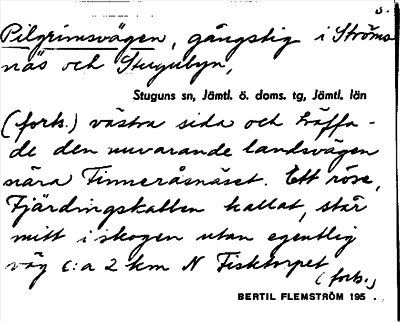 5.
Pilgrimsvägen, gångstig i Ströms-
näs och Stugubyn,
Stuguns sn, Jämtl. ö. doms. tg, Jämtl. län
(forts.) västra sida och träffa-
de den nuvarande landsvägen
nära Finneråsnäset. Ett röse,
Fjärdingskallen kallat, står
mitt i skogen utan egentlig
väg c:a 2 km N Fisktorpet
(forts.)
BERTIL FLEMSTRÖM 195 .